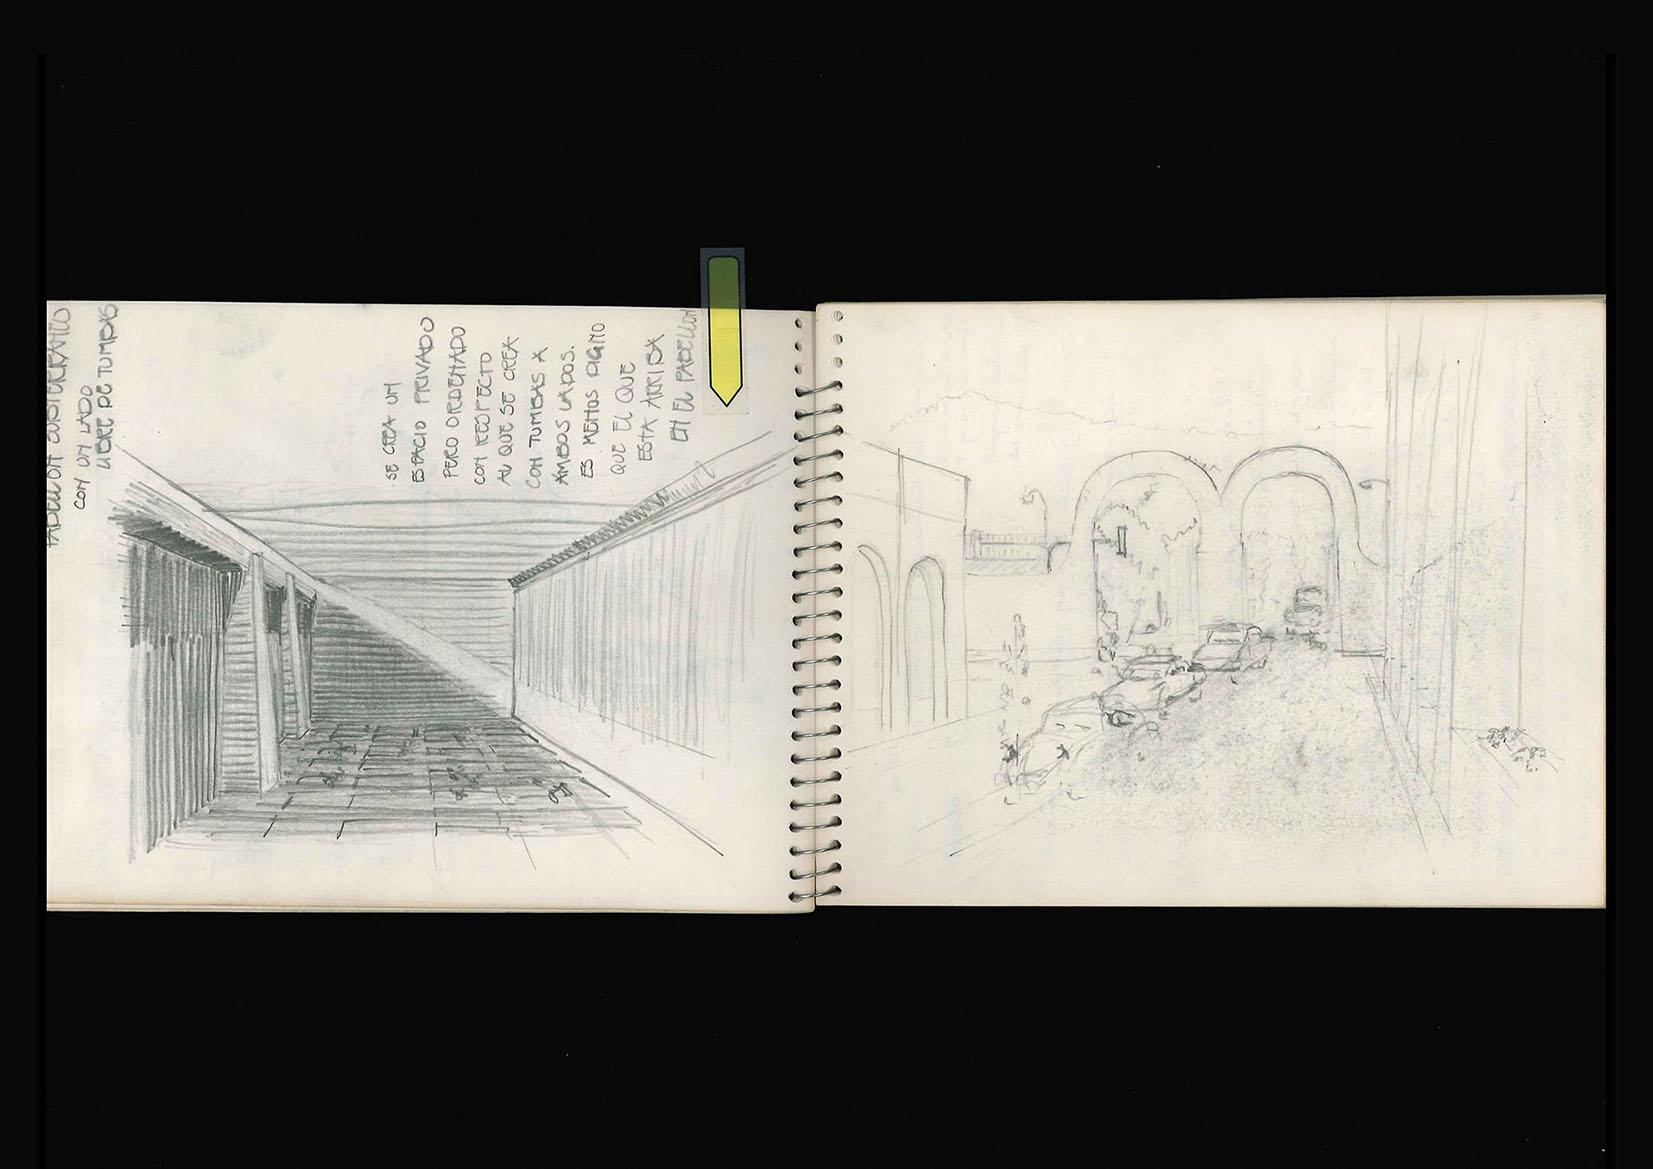 PABELLON SUBTERRANEO
CON UN LADO
LIBRE DE TUMBAS
SE CREA UN
ESPACIO PRIVADO
PERO ORDENADO
CON RESPECTO
AL QUE SE CREA
CON TUMBAS A
AMBOS LADOS.
ES MENOS DIGNO
QUE EL QUE
ESTA ARRIBA
EN EL PABELLON